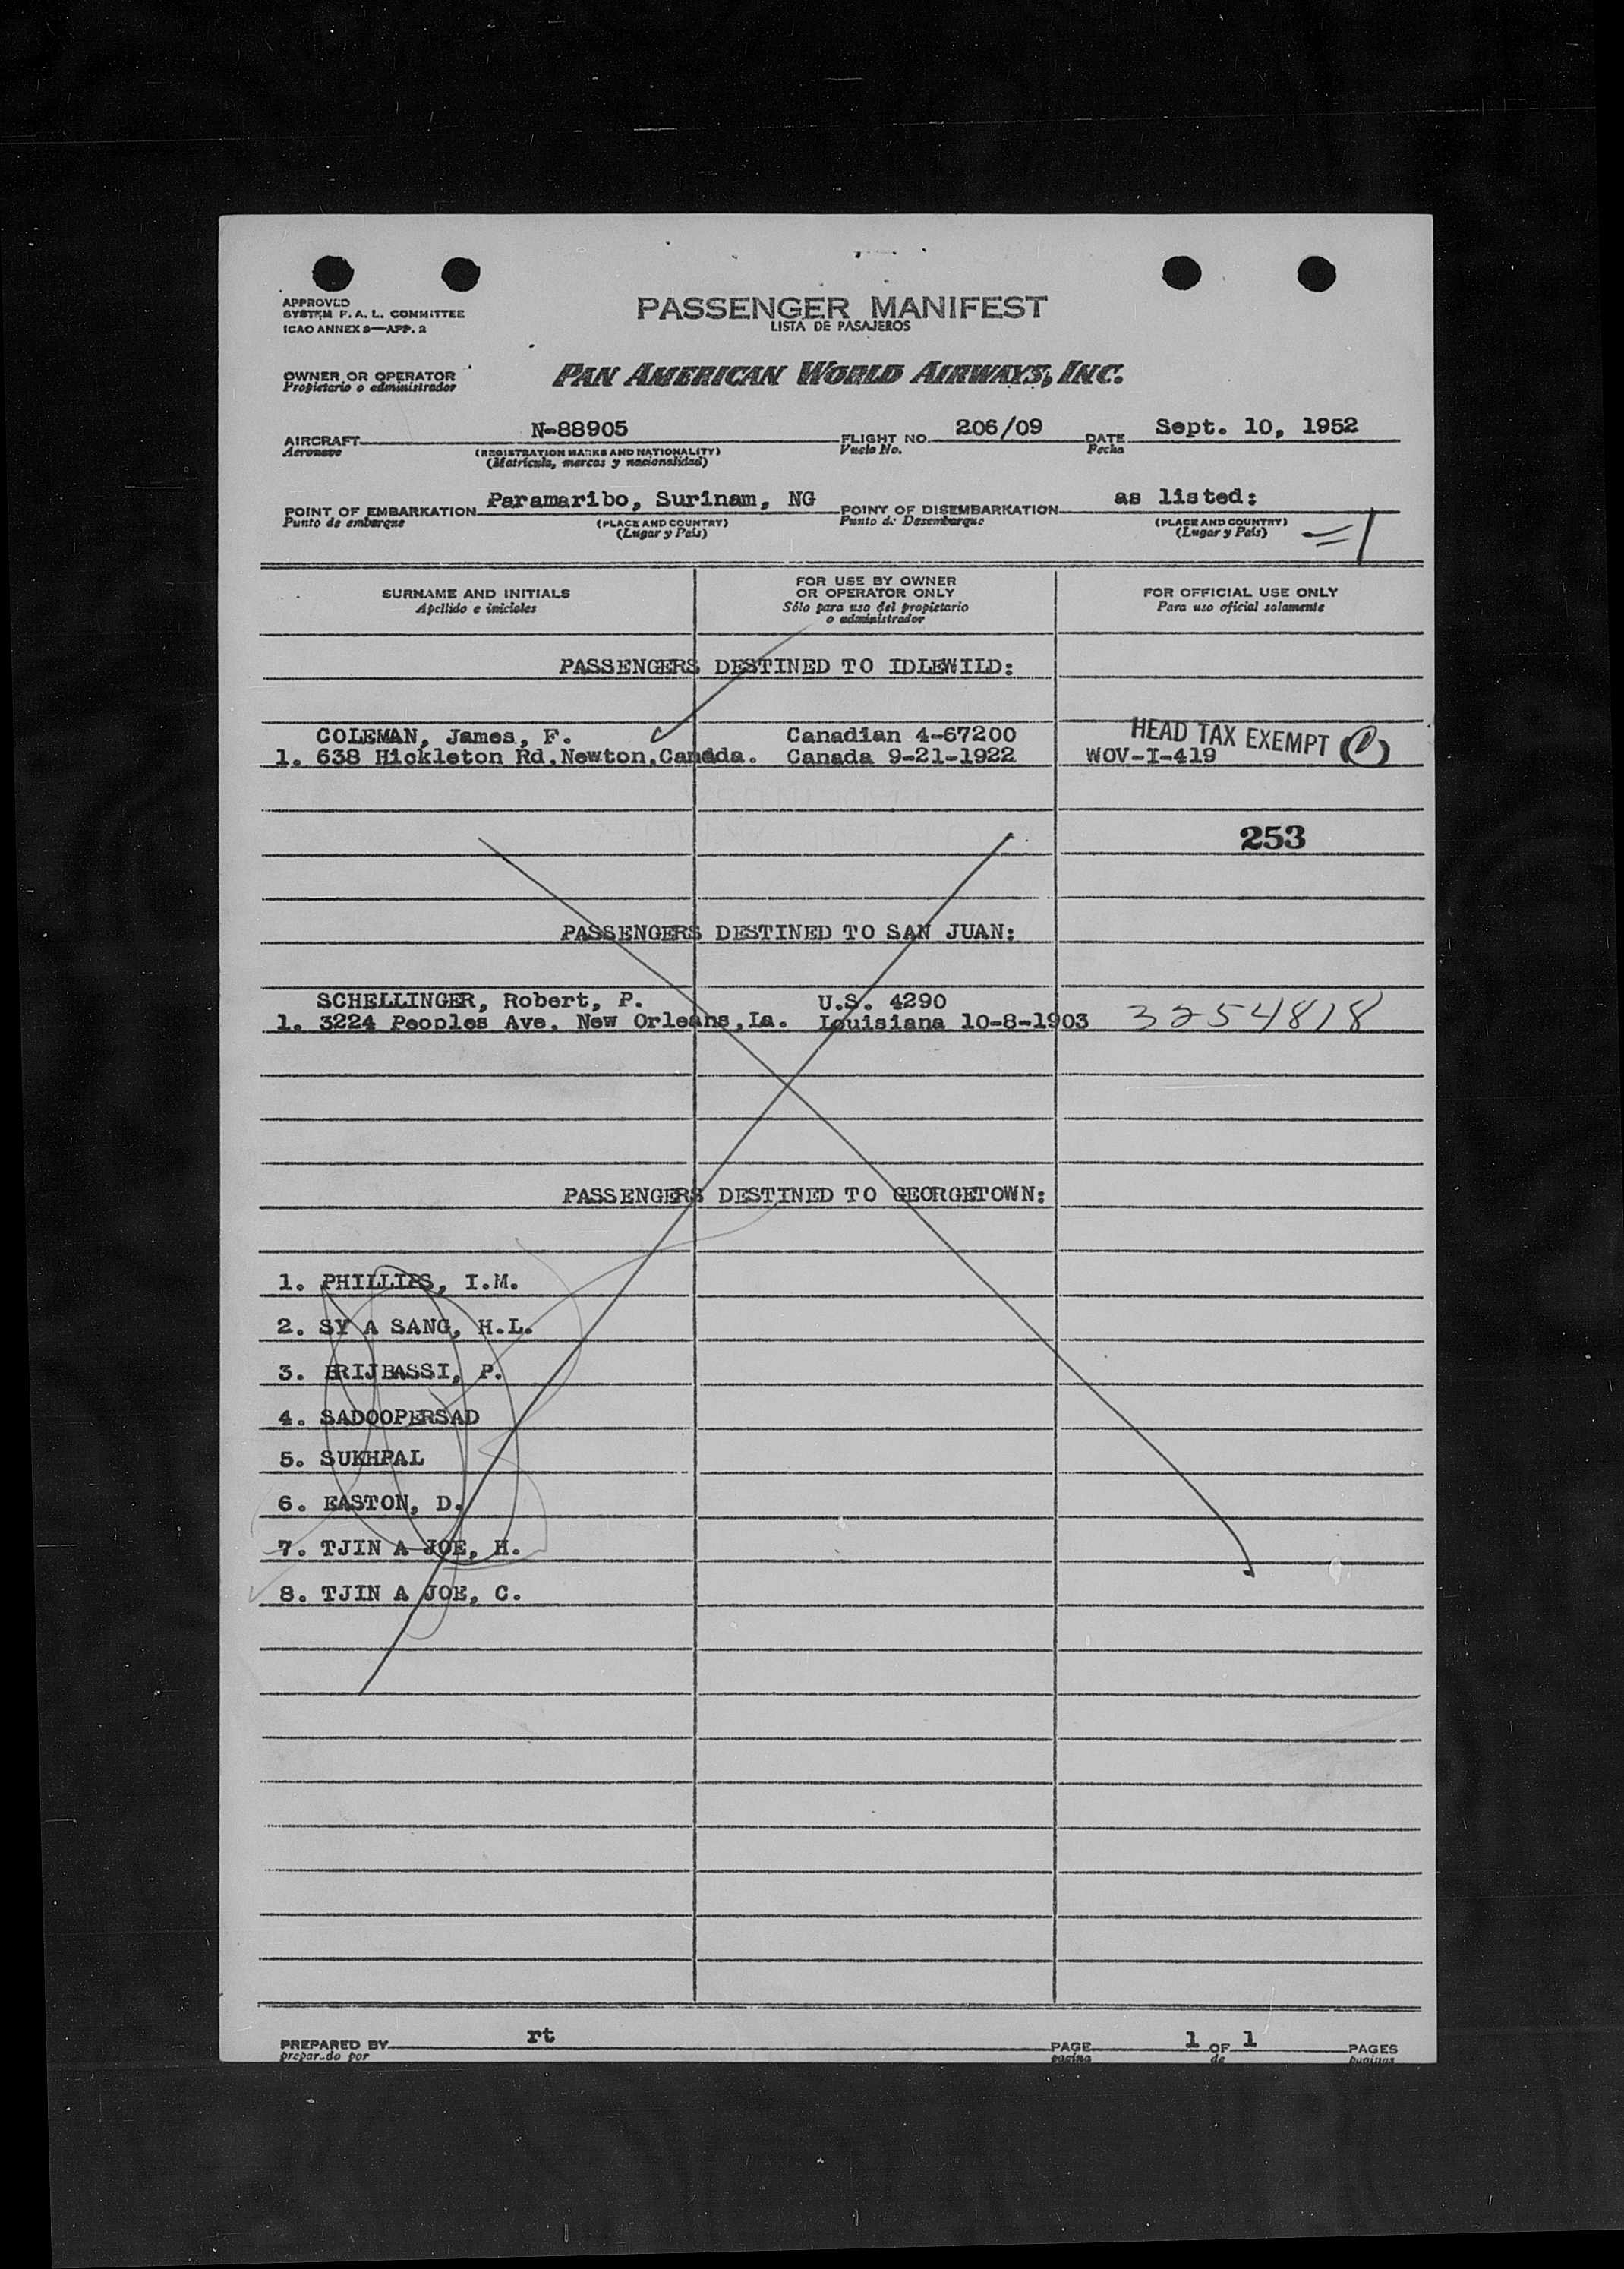 APPROVED
SYSTEM F. A. L. COMMITTEE
ICAO ANNEX 9—APP. 2
PASSENGER MANIFEST
LISTA DE PASAJEROS
OWNER OR OPERATOR
Propietario o administrador
PAN AMERICAN WORLD AIRWAYS, INC.
AIRCRAFT N-88905 FLIGHT NO. 206/09 DATE Sept. 10, 1952
Aeronave (REGISTRATION MARKS AND NATIONALITY) Vuelo No. Fecha
(Matricula, marcas y nacionalidad)
POINT OF EMBARKATION Paramaribo, Surinam, NG POINT OF DISEMBARKATION as listed:
Punto de embarque (PLACE AND COUNTRY) Punto de Desembarque (PLACE AND COUNTRY)
(Lugar y Pais) (Lugar y Pais) =1
SURNAME AND INITIALS
Apellido e iniciales
FOR USE BY OWNER
OR OPERATOR ONLY
Sólo para uso del propietario
o administrador
FOR OFFICIAL USE ONLY
Para uso oficial solamente
PASSENGERS DESTINED TO IDLEWILD:
COLEMAN, James, F. Canadian 4-67200 HEAD TAX EXEMPT
1. 638 Hickleton Rd.Newton,Canada. Canada 9-21-1922 WOV-I-419
253
PASSENGERS DESTINED TO SAN JUAN:
SCHELLINGER, Robert, P. U.S. 4290
1. 3224 Peoples Ave. New Orleans,La. Louisiana 10-8-1903 3254818
PASSENGERS DESTINED TO GEORGETOWN:
1. PHILLIPS, I.M.
2. SY A SANG, H.L.
3. BRIJBASSI, P.
4. SADOOPERSAD
5. SUKHPAL
6. EASTON, D.
7. TJIN A JOE, H.
8. TJIN A JOE, C.
PREPARED BY rt PAGE 1 OF 1 PAGES
preparado por pagina de paginas